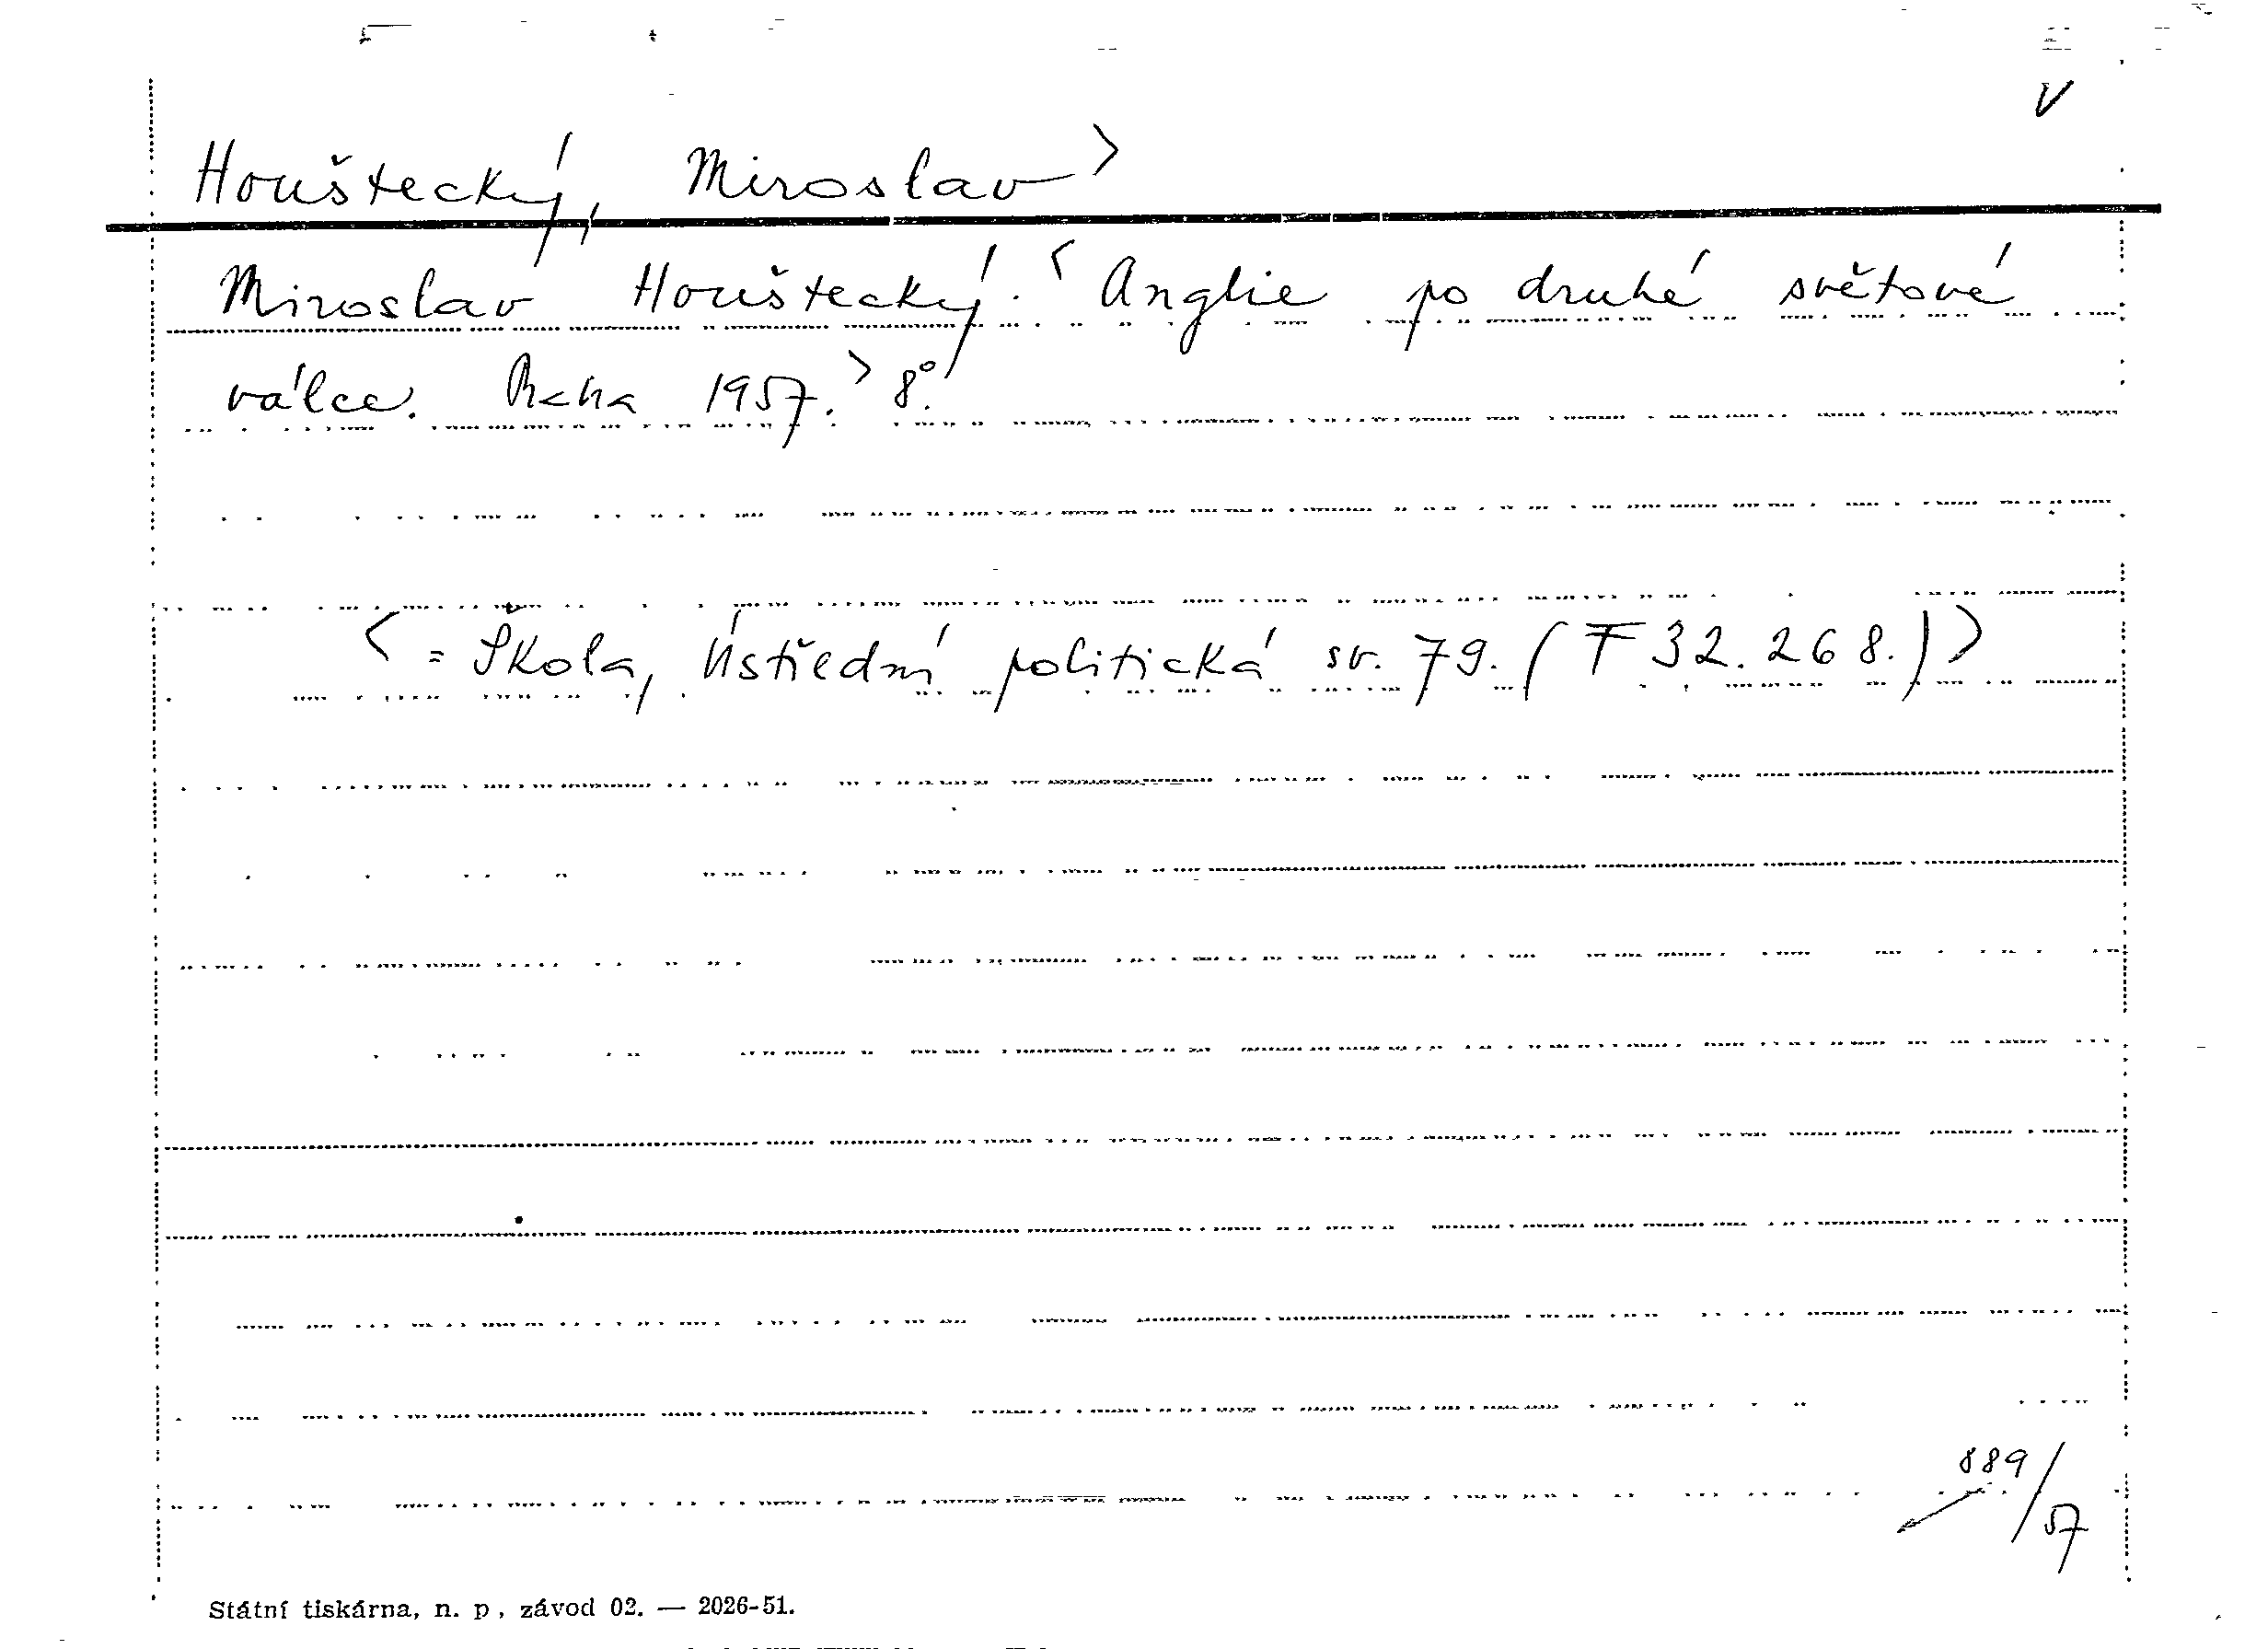 V
Houštecký, Miroslav>
Miroslav Houštecký. <Anglie po druhé světové
válce. Praha 1957.> 8°.
<= Škola, Ústřední politická sv. 79. (F 32.268.)>
889/57
Státní tiskárna, n. p., závod 02. — 2026-51.